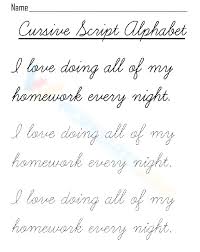 Name
Cursive Script Alphabet
I love doing all of my
homework every night.
I love doing all of my
homework every night.
I love doing all of my
homework every night.